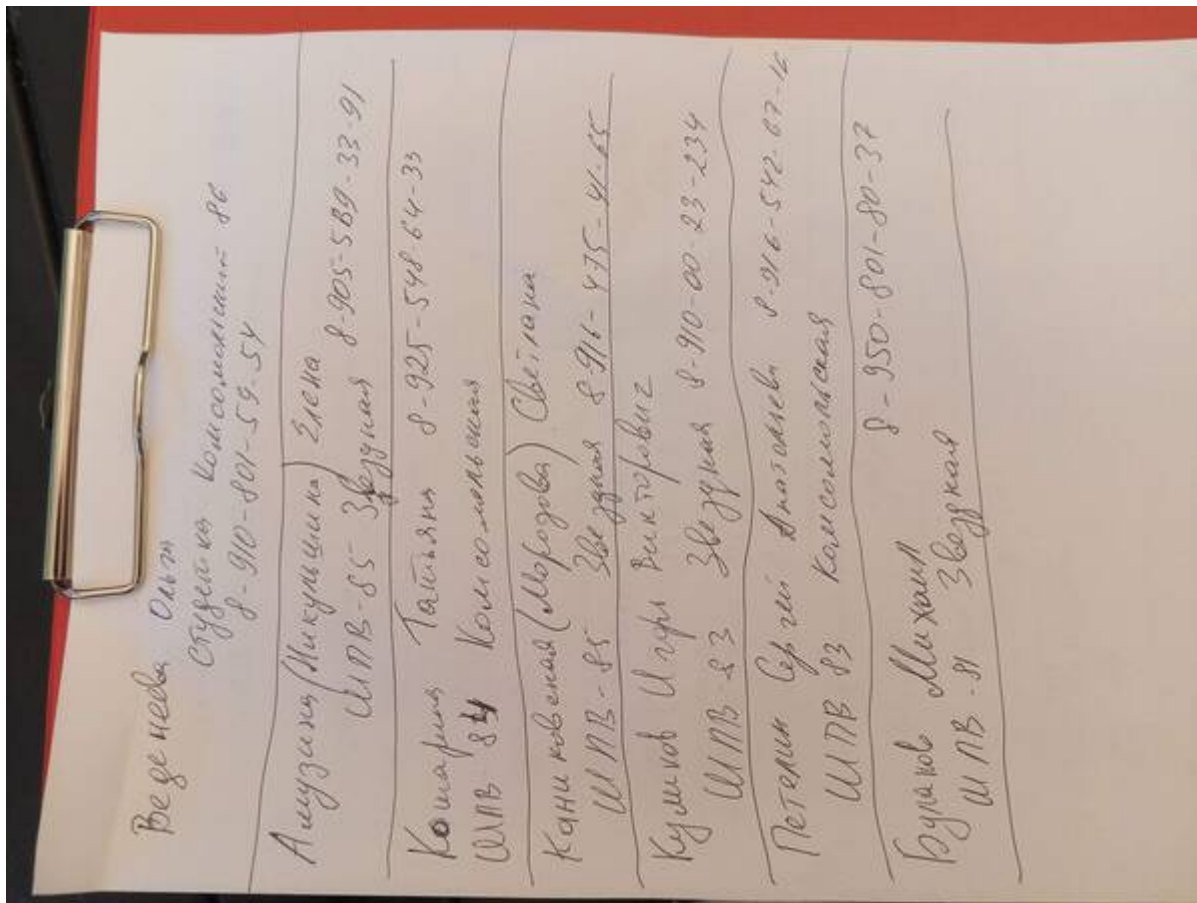 Веденеева Ольга
Студентка Комсомольский 86
8-910-801-59-54
Амузина (Микульшина) Элена
ШПВ-85 Звездная 8-905-5В9-33-91
Кошарина Татьяна 8-925-548-64-33
ШПВ 84 Комсомольская
(Морозова) Светлана
ШПВ-85 Звездная 8-916-475-41-65
Куликов Игорь Викторович
ШПВ-83 Звездная 8-910-00-23-234
Петелин Сергей 8-916-542-67-16
ШПВ 83 Комсомольская
Бураков Михаил 8-950-801-80-37
ШПВ-81 Звездная